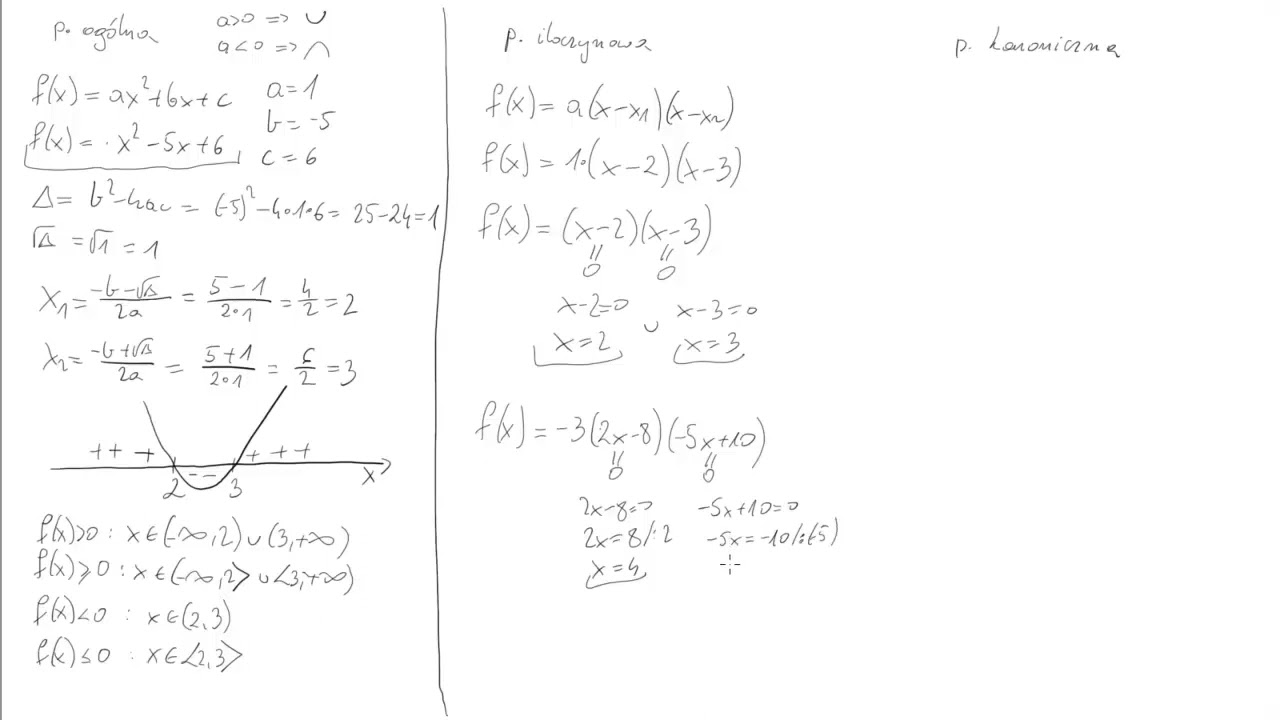 p. ogólna
a>0 => ∪
a<0 => ∩
f(x) = ax²+bx+c
a=1
f(x) = x² - 5x + 6
b = -5
c = 6
Δ = b²-4ac = (-5)² - 4·1·6 = 25-24 = 1
√Δ = √1 = 1
x₁ = (-b-√Δ)/2a = (5-1)/2·1 = 4/2 = 2
x₂ = (-b+√Δ)/2a = (5+1)/2·1 = 6/2 = 3
+ + + + + +
- -
2 3 x
f(x)>0 : x∈(-∞,2)∪(3,+∞)
f(x)≥0 : x∈(-∞,2>∪<3,+∞)
f(x)<0 : x∈(2,3)
f(x)≤0 : x∈<2,3>
p. iloczynowa
f(x) = a(x-x₁)(x-x₂)
f(x) = 1·(x-2)(x-3)
f(x) = (x-2)(x-3)
= =
0 0
x-2=0 ∪ x-3=0
x=2 x=3
f(x) = -3(2x-8)(-5x+10)
= =
0 0
2x-8=0 -5x+10=0
2x=8/:2 -5x=-10/:(-5)
x=4
p. kanoniczna